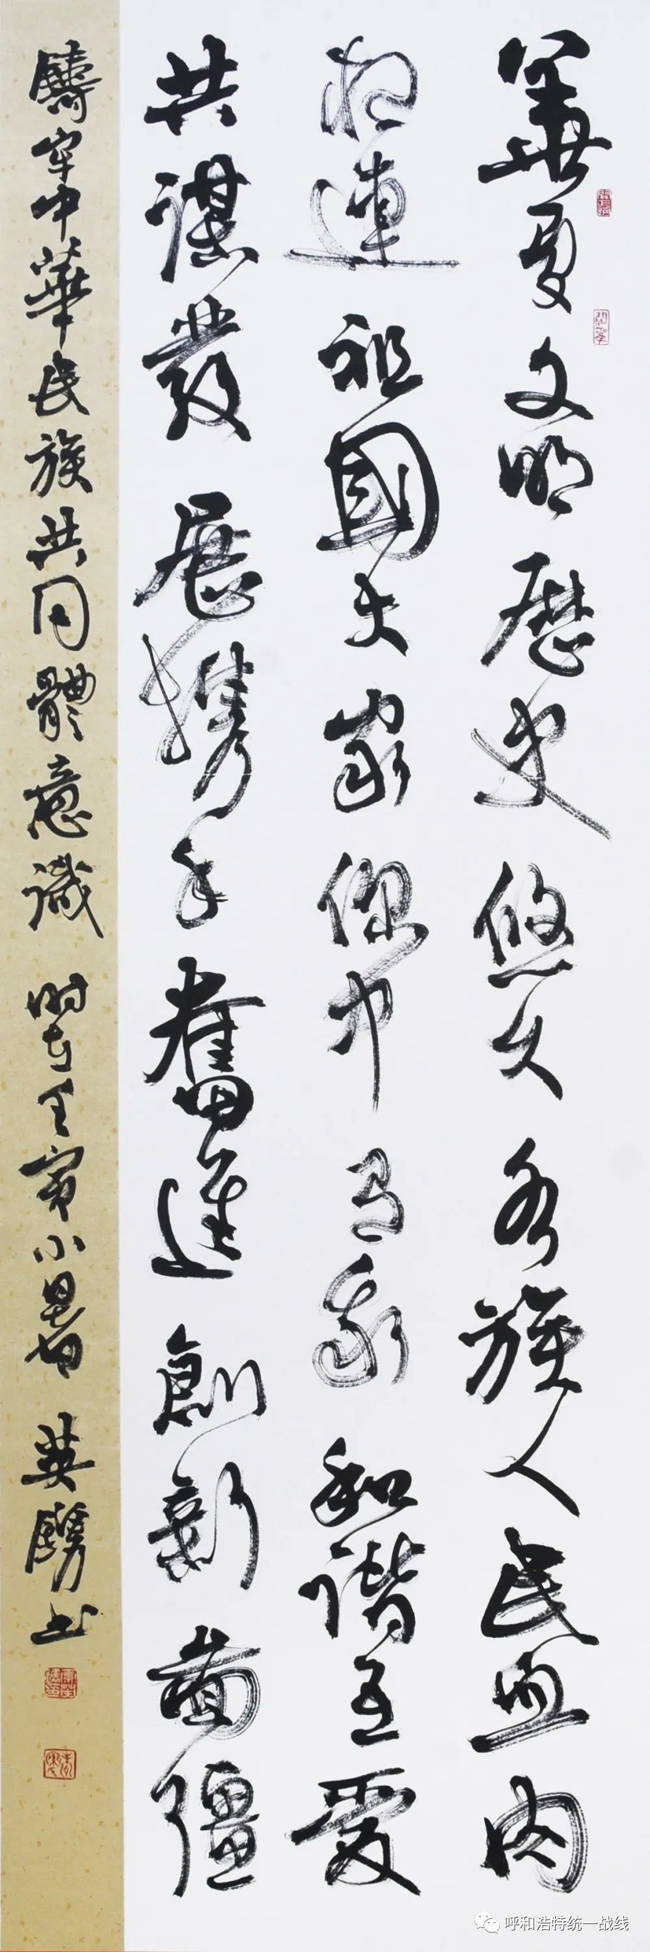 華夏文明歷史悠久各族人民血肉
相連祖國大家你中有我和諧互愛
共謀發展攜手奮進創新圖彊
鑄牢中華民族共同體意識 時在壬寅小暑 英書
呼和浩特统一战线